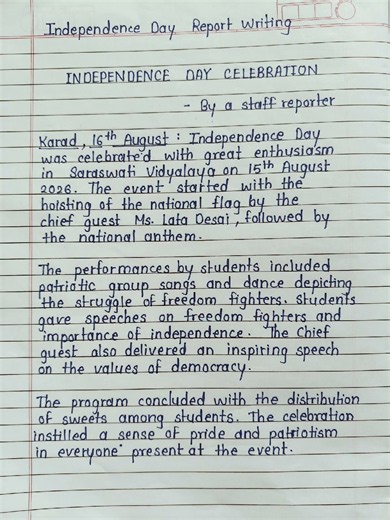 Independence Day Report Writing
INDEPENDENCE DAY CELEBRATION
- By a staff reporter
Karad, 16th August : Independence Day
was celebrated with great enthusiasm
in Saraswati Vidyalaya on 15th August
2026. The event started with the
hoisting of the national flag by the
chief guest Ms. Lata Desai, followed by
the national anthem.
The performances by students included
patriotic group songs and dance depicting
the struggle of freedom fighters. Students
gave speeches on freedom fighters and
importance of independence. The Chief
guest also delivered an inspiring speech
on the values of democracy.
The program concluded with the distribution
of sweets among students. The celebration
instilled a sense of pride and patriotism
in everyone present at the event.